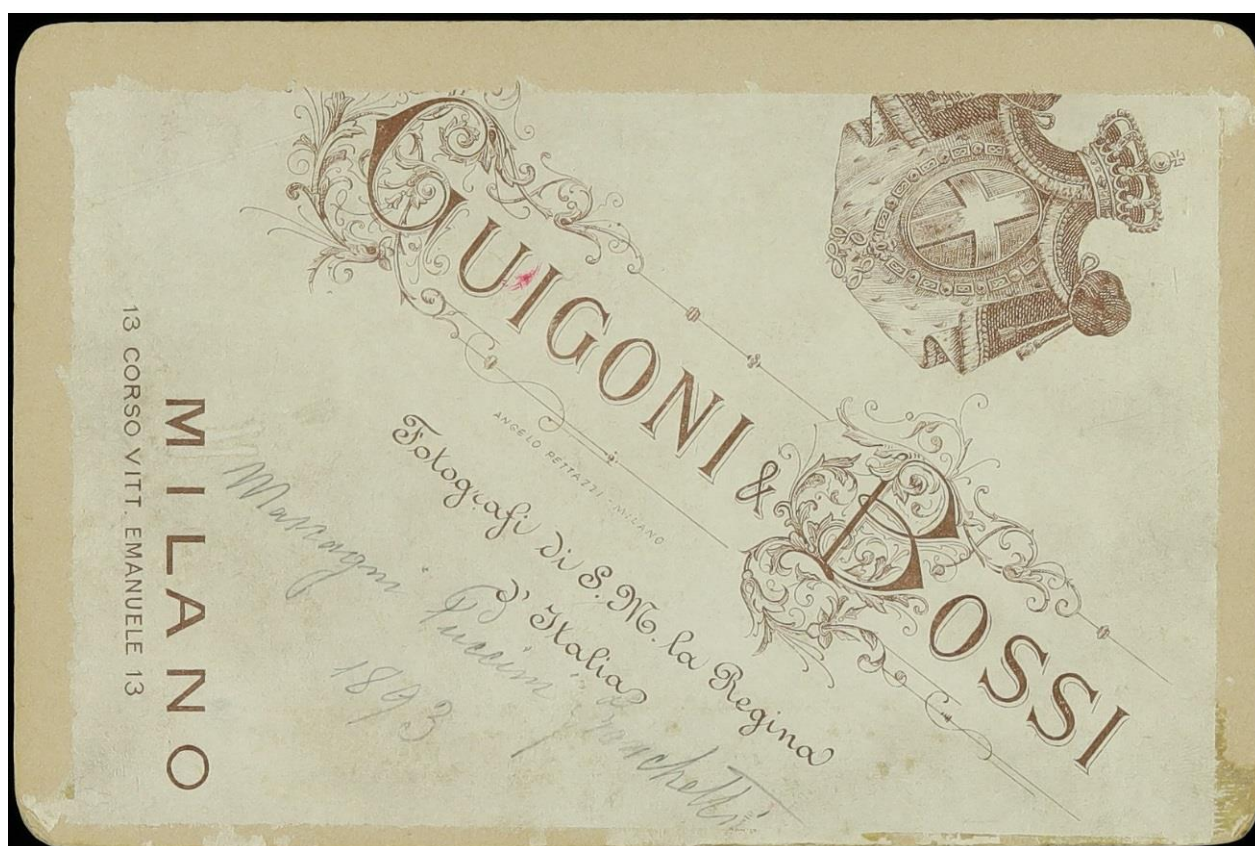 GUIGONI & ROSSI
ANGELO PETTAZZI - MILANO
Fotografi di S. M. la Regina
d'Italia
Mascagni Puccini Franchetti
1893
MILANO
13 CORSO VITT. EMANUELE 13